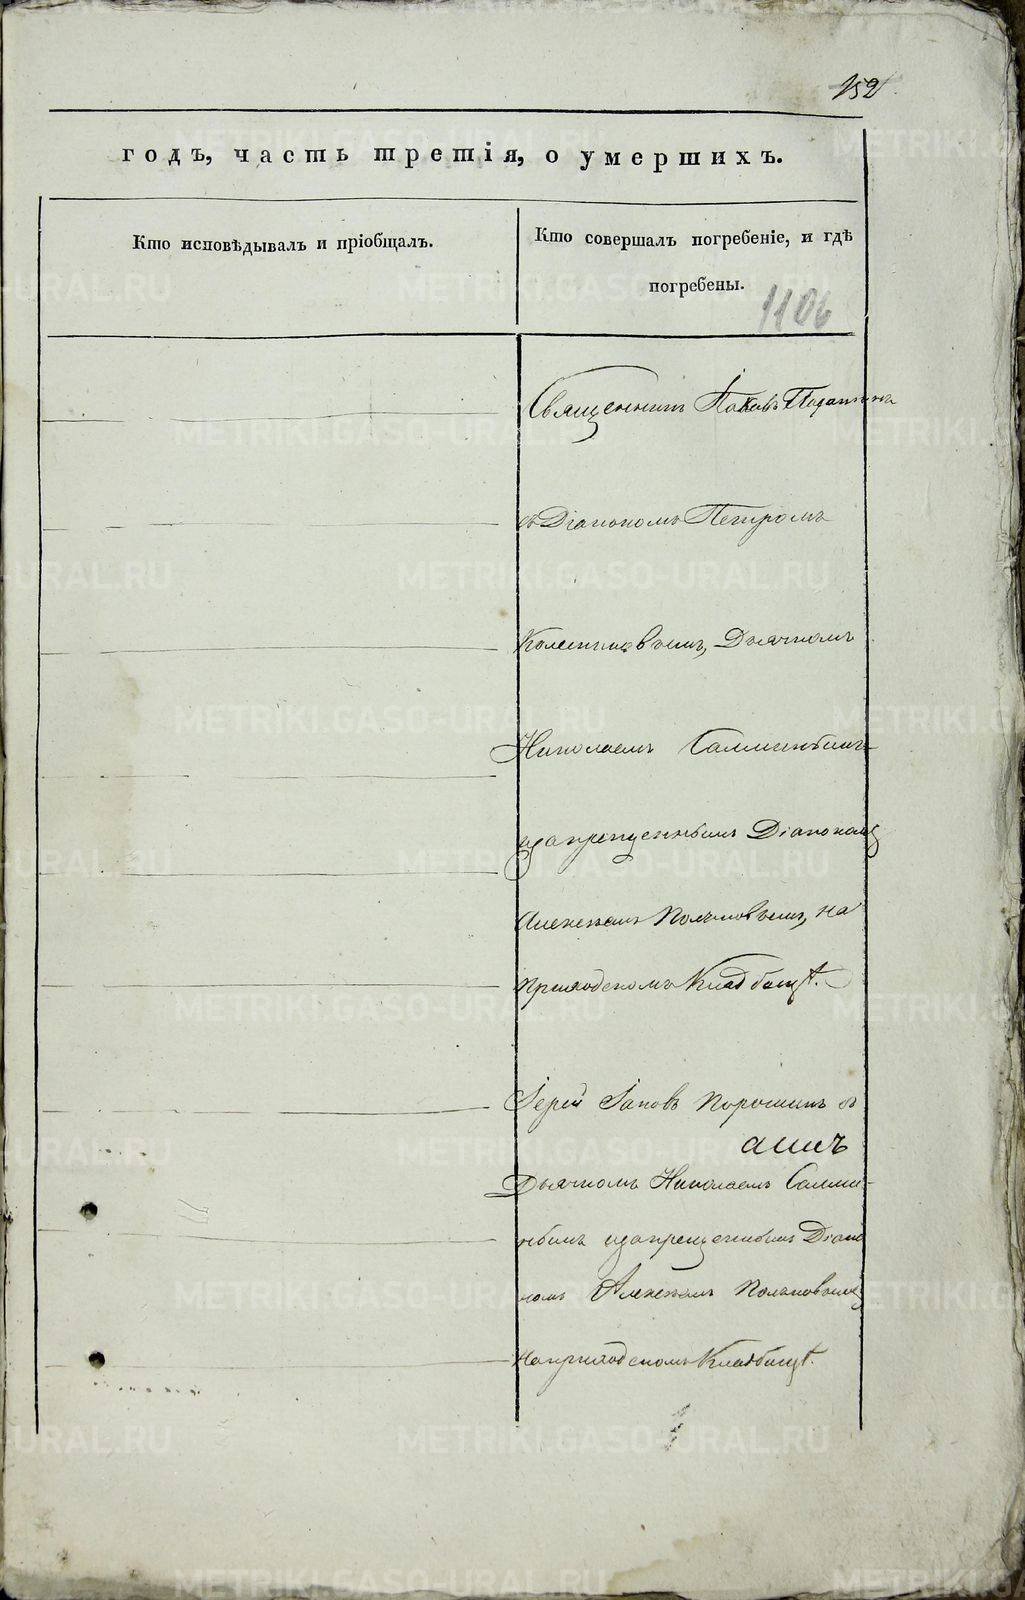 152
годъ, часть третія, о умершихъ.
Кто исповѣдывалъ и пріобщалъ.
Кто совершалъ погребеніе, и гдѣ
погребены.
1106
Священникъ Іаковъ
съ Діакономъ Петромъ
Дьячкомъ
Николаемъ Салминымъ
изапрещеннымъ Діакономъ
Алексѣемъ на
приходскомъ Кладбищѣ.
Іерей Іаковъ Порошинъ съ
Дьячкомъ Николаемъ Салми-
нымъ изапрещеннымъ Діако
номъ Алексѣемъ
наприходскомъ Кладбищѣ.
METRIKI.GASO-URAL.RU